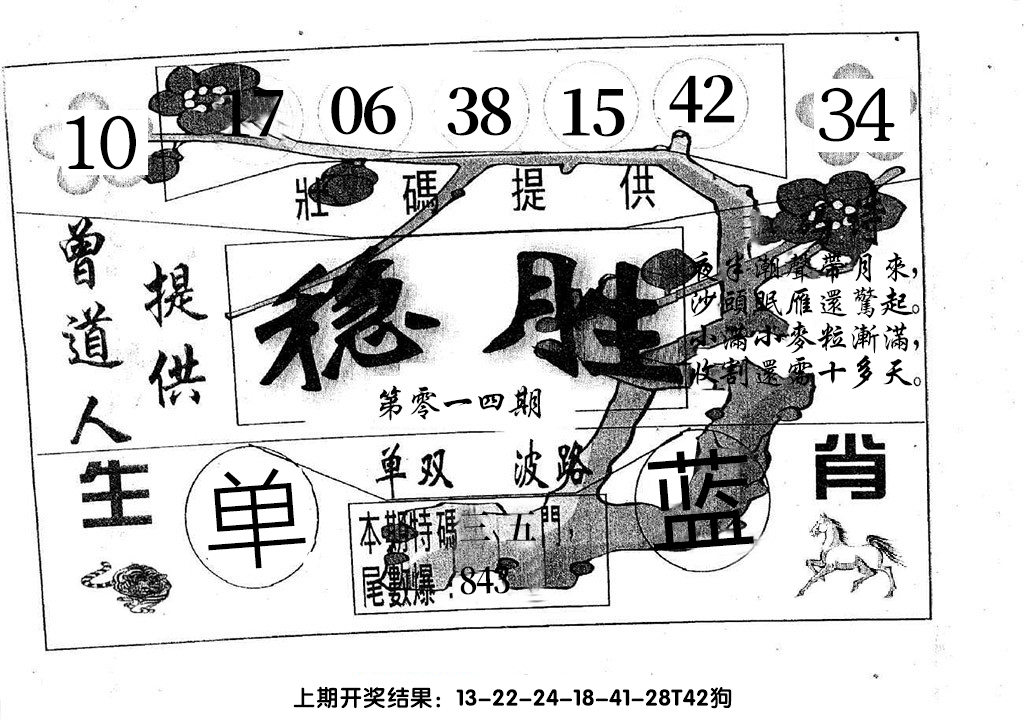 10 17 06 38 15 42 34
壯碼提供
曾道人
提供
稳胜
第零一四期
夜半潮聲帶月來，
沙頭眠雁還驚起。
小滿小麥粒漸滿，
收割還需十多天。
单双 波路
生肖
单
蓝
本期特碼三、五門，
尾數爆：843
上期开奖结果：13-22-24-18-41-28T42狗